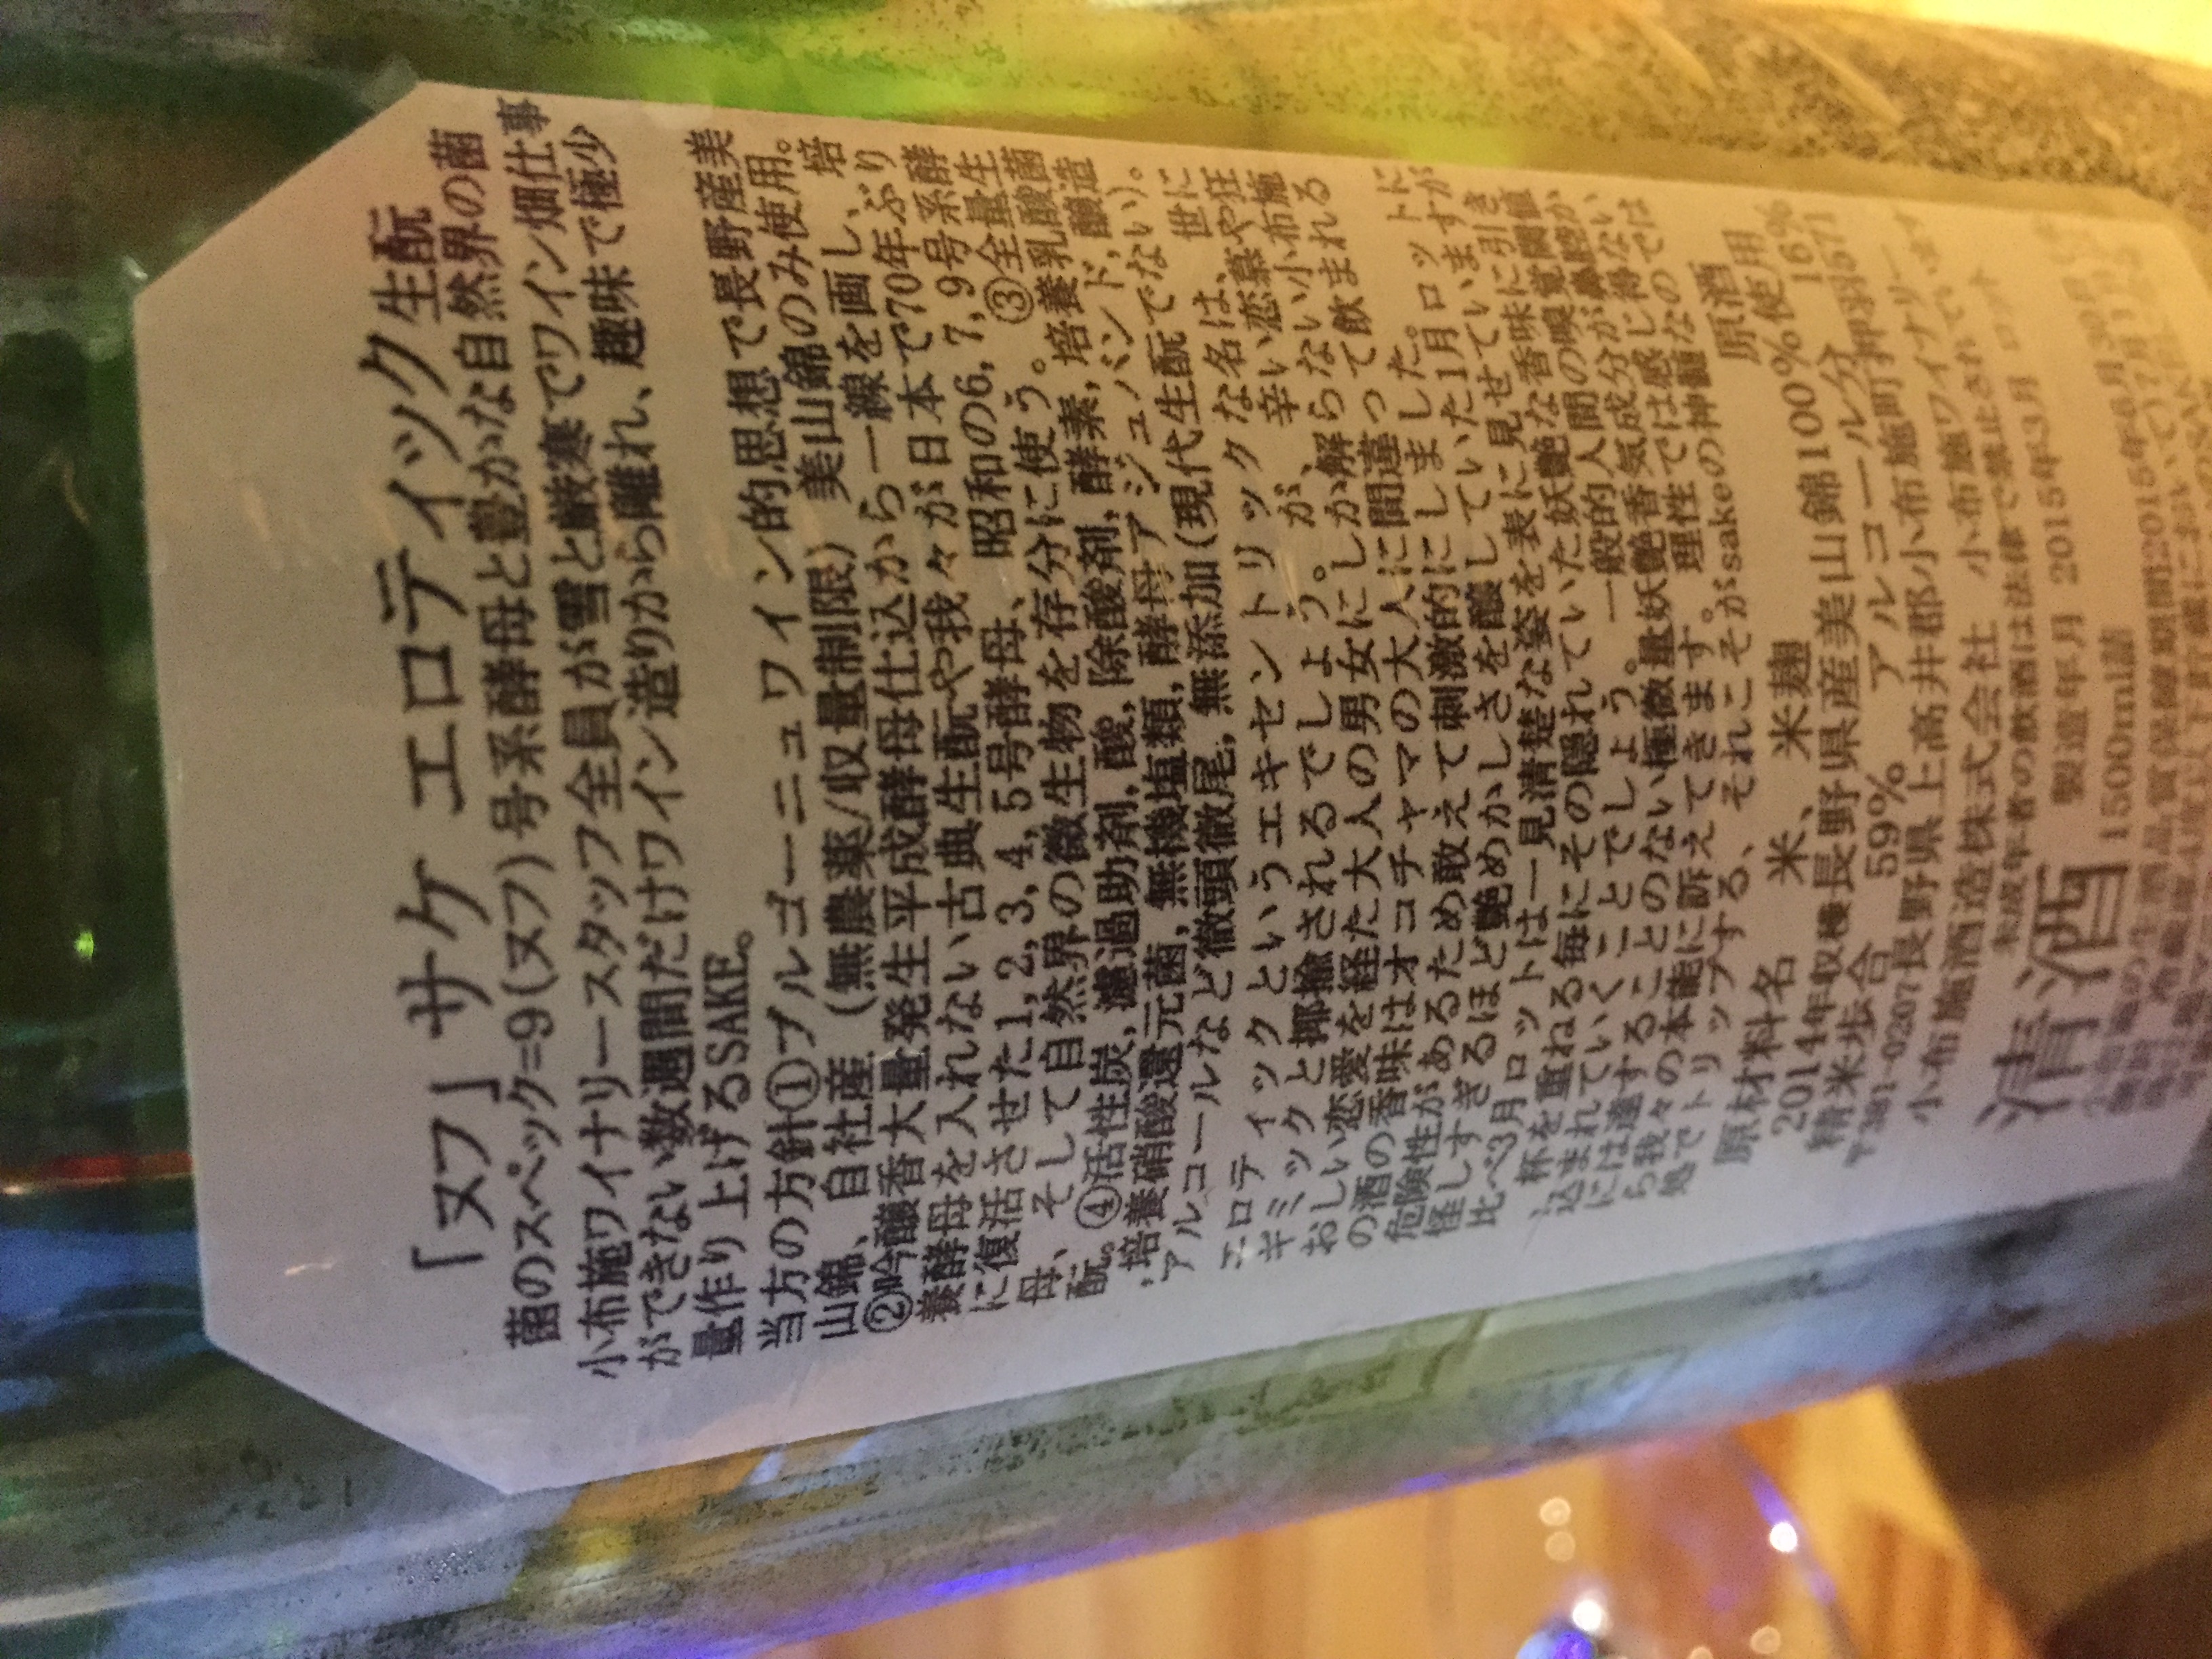 「ヌフ」サケ エロティック生酛
菌のスペック=9(ヌフ)号系酵母と豊かな自然界の菌
小布施ワイナリースタッフ全員が雪と厳寒でワイン畑仕事
ができない数週間だけワイン造りから離れ、趣味で極少
量作り上げるSAKE。
当方の方針①ブルゴーニュワイン的思想で長野産美
山錦、自社産(無農薬/収量制限)美山錦のみ使用。
②吟醸香大量発生平成酵母仕込から一線を画し、培
養酵母を入れない古典生酛や我々が日本で70年ぶり
に復活させた1,2,3,4,5号酵母、昭和の6,7,9号系酵
母、そして自然界の微生物を存分に使う。③全量生
酛。④活性炭,濾過助剤,酸,除酸剤,酵素,培養乳酸菌
,培養硝酸還元菌,無機塩類,酵母アジュバンド,醸造
アルコールなど徹頭徹尾,無添加(現代生酛でない)。
エロティックというエキセントリックな名は、世に
ギミックと揶揄されるでしょう。が、辛い恋慕や狂
おしい恋愛を経た大人の男女にしか解らない小布施
の酒の香味はオコチャマの大人に間違って飲まれる
危険性があるため敢えて刺激的にしました。
怪しすぎるほど艶めかしさを醸していた1月ロットに
比べ3月ロットは一見清楚な姿を表に見せていますが
杯を重ねる毎にその隠れていた妖艶な香味に引き
込まれていくことでしょう。一般的人間の嗅覚閾値
には達することのない極微量妖艶香気成分が鼻腔か
ら我々の本能に訴えてきます。理性では感じ得ない
処でトリップする、それこそがsakeの神髄なのでは
原材料名 米、米麹 原酒
2014年収穫長野県産美山錦100%使用
精米歩合 59% アルコール分 16%
〒381-0207長野県上高井郡小布施町押羽571
小布施酒造株式会社 小布施ワイナリー
未成年者の飲酒は法律で禁止されています
製造年月 2015年3月 ロット
清酒 1500ml詰